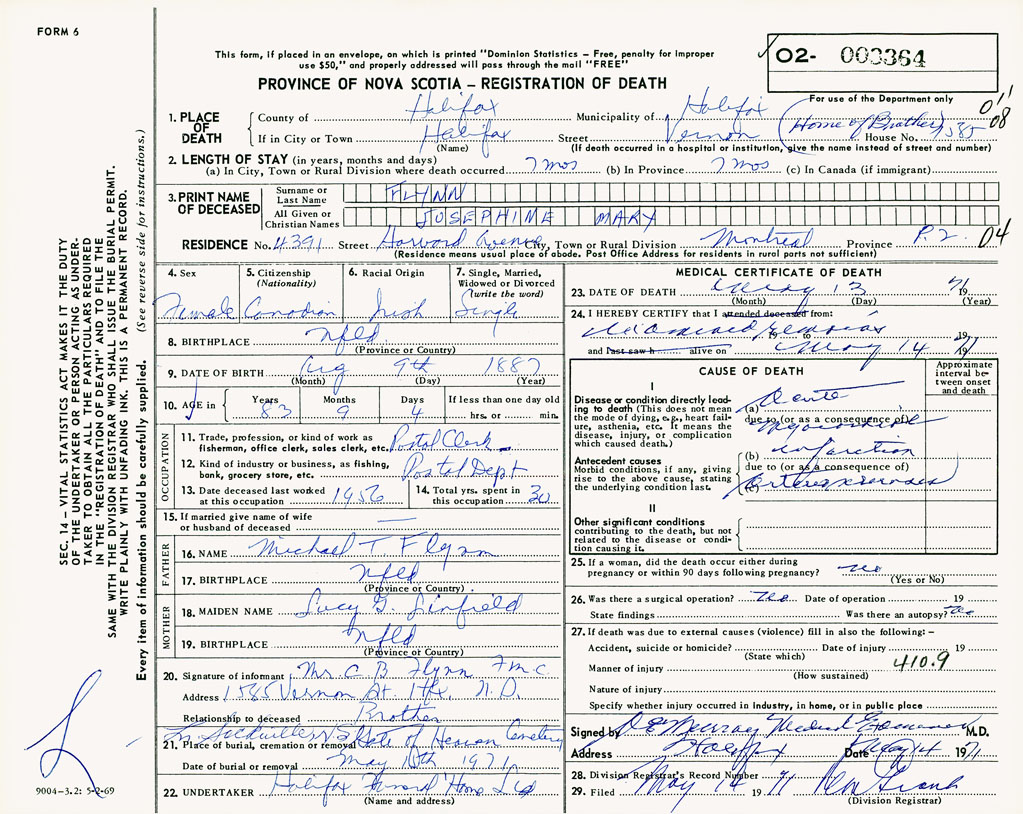 FORM 6
This form, if placed in an envelope, on which is printed "Dominion Statistics – Free, penalty for improper
use $50," and properly addressed will pass through the mail "FREE"
O2- 003364
PROVINCE OF NOVA SCOTIA – REGISTRATION OF DEATH
For use of the Department only
011
08
1. PLACE OF DEATH
County of Halifax Municipality of Halifax
If in City or Town Halifax Street Vernon (Home of Brother) House No. 1585
(Name) (If death occurred in a hospital or institution, give the name instead of street and number)
2. LENGTH OF STAY (in years, months and days)
(a) In City, Town or Rural Division where death occurred 7 mos (b) In Province 7 mos (c) In Canada (if immigrant)
3. PRINT NAME OF DECEASED
Surname or Last Name FLYNN
All Given or Christian Names JOSEPHINE MARY
RESIDENCE No. 4391 Street Harvard Avenue City, Town or Rural Division Montreal Province P.Q. 04
(Residence means usual place of abode. Post Office Address for residents in rural parts not sufficient)
4. Sex Female
5. Citizenship (Nationality) Canadian
6. Racial Origin Irish
7. Single, Married, Widowed or Divorced (write the word) Single
8. BIRTHPLACE Nfld
(Province or Country)
9. DATE OF BIRTH Aug 9th 1887
(Month) (Day) (Year)
10. AGE in Years 83 Months 9 Days 4 If less than one day old hrs. or min.
OCCUPATION
11. Trade, profession, or kind of work as fisherman, office clerk, sales clerk, etc. Postal Clerk
12. Kind of industry or business, as fishing, bank, grocery store, etc. Postal Dept
13. Date deceased last worked at this occupation 1956
14. Total yrs. spent in this occupation 30
15. If married give name of wife or husband of deceased —
FATHER
16. NAME Michael T. Flynn
17. BIRTHPLACE Nfld
(Province or Country)
MOTHER
18. MAIDEN NAME Lucy G. Linfield
19. BIRTHPLACE Nfld
(Province or Country)
20. Signature of informant Mr. C B Flynn
Address 1585 Vernon St. Hfx.
Relationship to deceased Brother
21. Place of burial, cremation or removal Gate of Heaven Cemetery Lr. Sackville N.S.
Date of burial or removal May 16th 1971
22. UNDERTAKER Halifax Funeral Home Ltd
(Name and address)
MEDICAL CERTIFICATE OF DEATH
23. DATE OF DEATH May 13 1971
(Month) (Day) (Year)
24. I HEREBY CERTIFY that I attended deceased from:
examined remains 19 to 19
and last saw h alive on May 14 1971
CAUSE OF DEATH
Approximate interval between onset and death
I
Disease or condition directly leading to death (This does not mean the mode of dying, e.g., heart failure, asthenia, etc. It means the disease, injury, or complication which caused death.)
(a) Acute
due to (or as a consequence of)
myocardial
Antecedent causes
Morbid conditions, if any, giving rise to the above cause, stating the underlying condition last.
(b) infarction
due to (or as a consequence of)
(c) arteriosclerosis
II
Other significant conditions contributing to the death, but not related to the disease or condition causing it.
25. If a woman, did the death occur either during pregnancy or within 90 days following pregnancy? no
(Yes or No)
26. Was there a surgical operation? no Date of operation 19
State findings Was there an autopsy? no
27. If death was due to external causes (violence) fill in also the following: –
Accident, suicide or homicide? Date of injury 19
(State which)
410.9
Manner of injury
(How sustained)
Nature of injury
Specify whether injury occurred in industry, in home, or in public place
Signed by D E Murray Medical Examiner M.D.
Address Halifax Date May 14 1971
28. Division Registrar's Record Number
29. Filed May 14 1971
(Division Registrar)
SEC. 14 – VITAL STATISTICS ACT MAKES IT THE DUTY
OF THE UNDERTAKER OR PERSON ACTING AS UNDER-
TAKER TO OBTAIN ALL THE PARTICULARS REQUIRED
IN THE "REGISTRATION OF DEATH" AND TO FILE THE
SAME WITH THE DIVISION REGISTRAR WHO SHALL ISSUE THE BURIAL PERMIT.
WRITE PLAINLY WITH UNFADING INK. THIS IS A PERMANENT RECORD.
Every item of information should be carefully supplied. (See reverse side for instructions.)
9004-3.2: 5-2-69